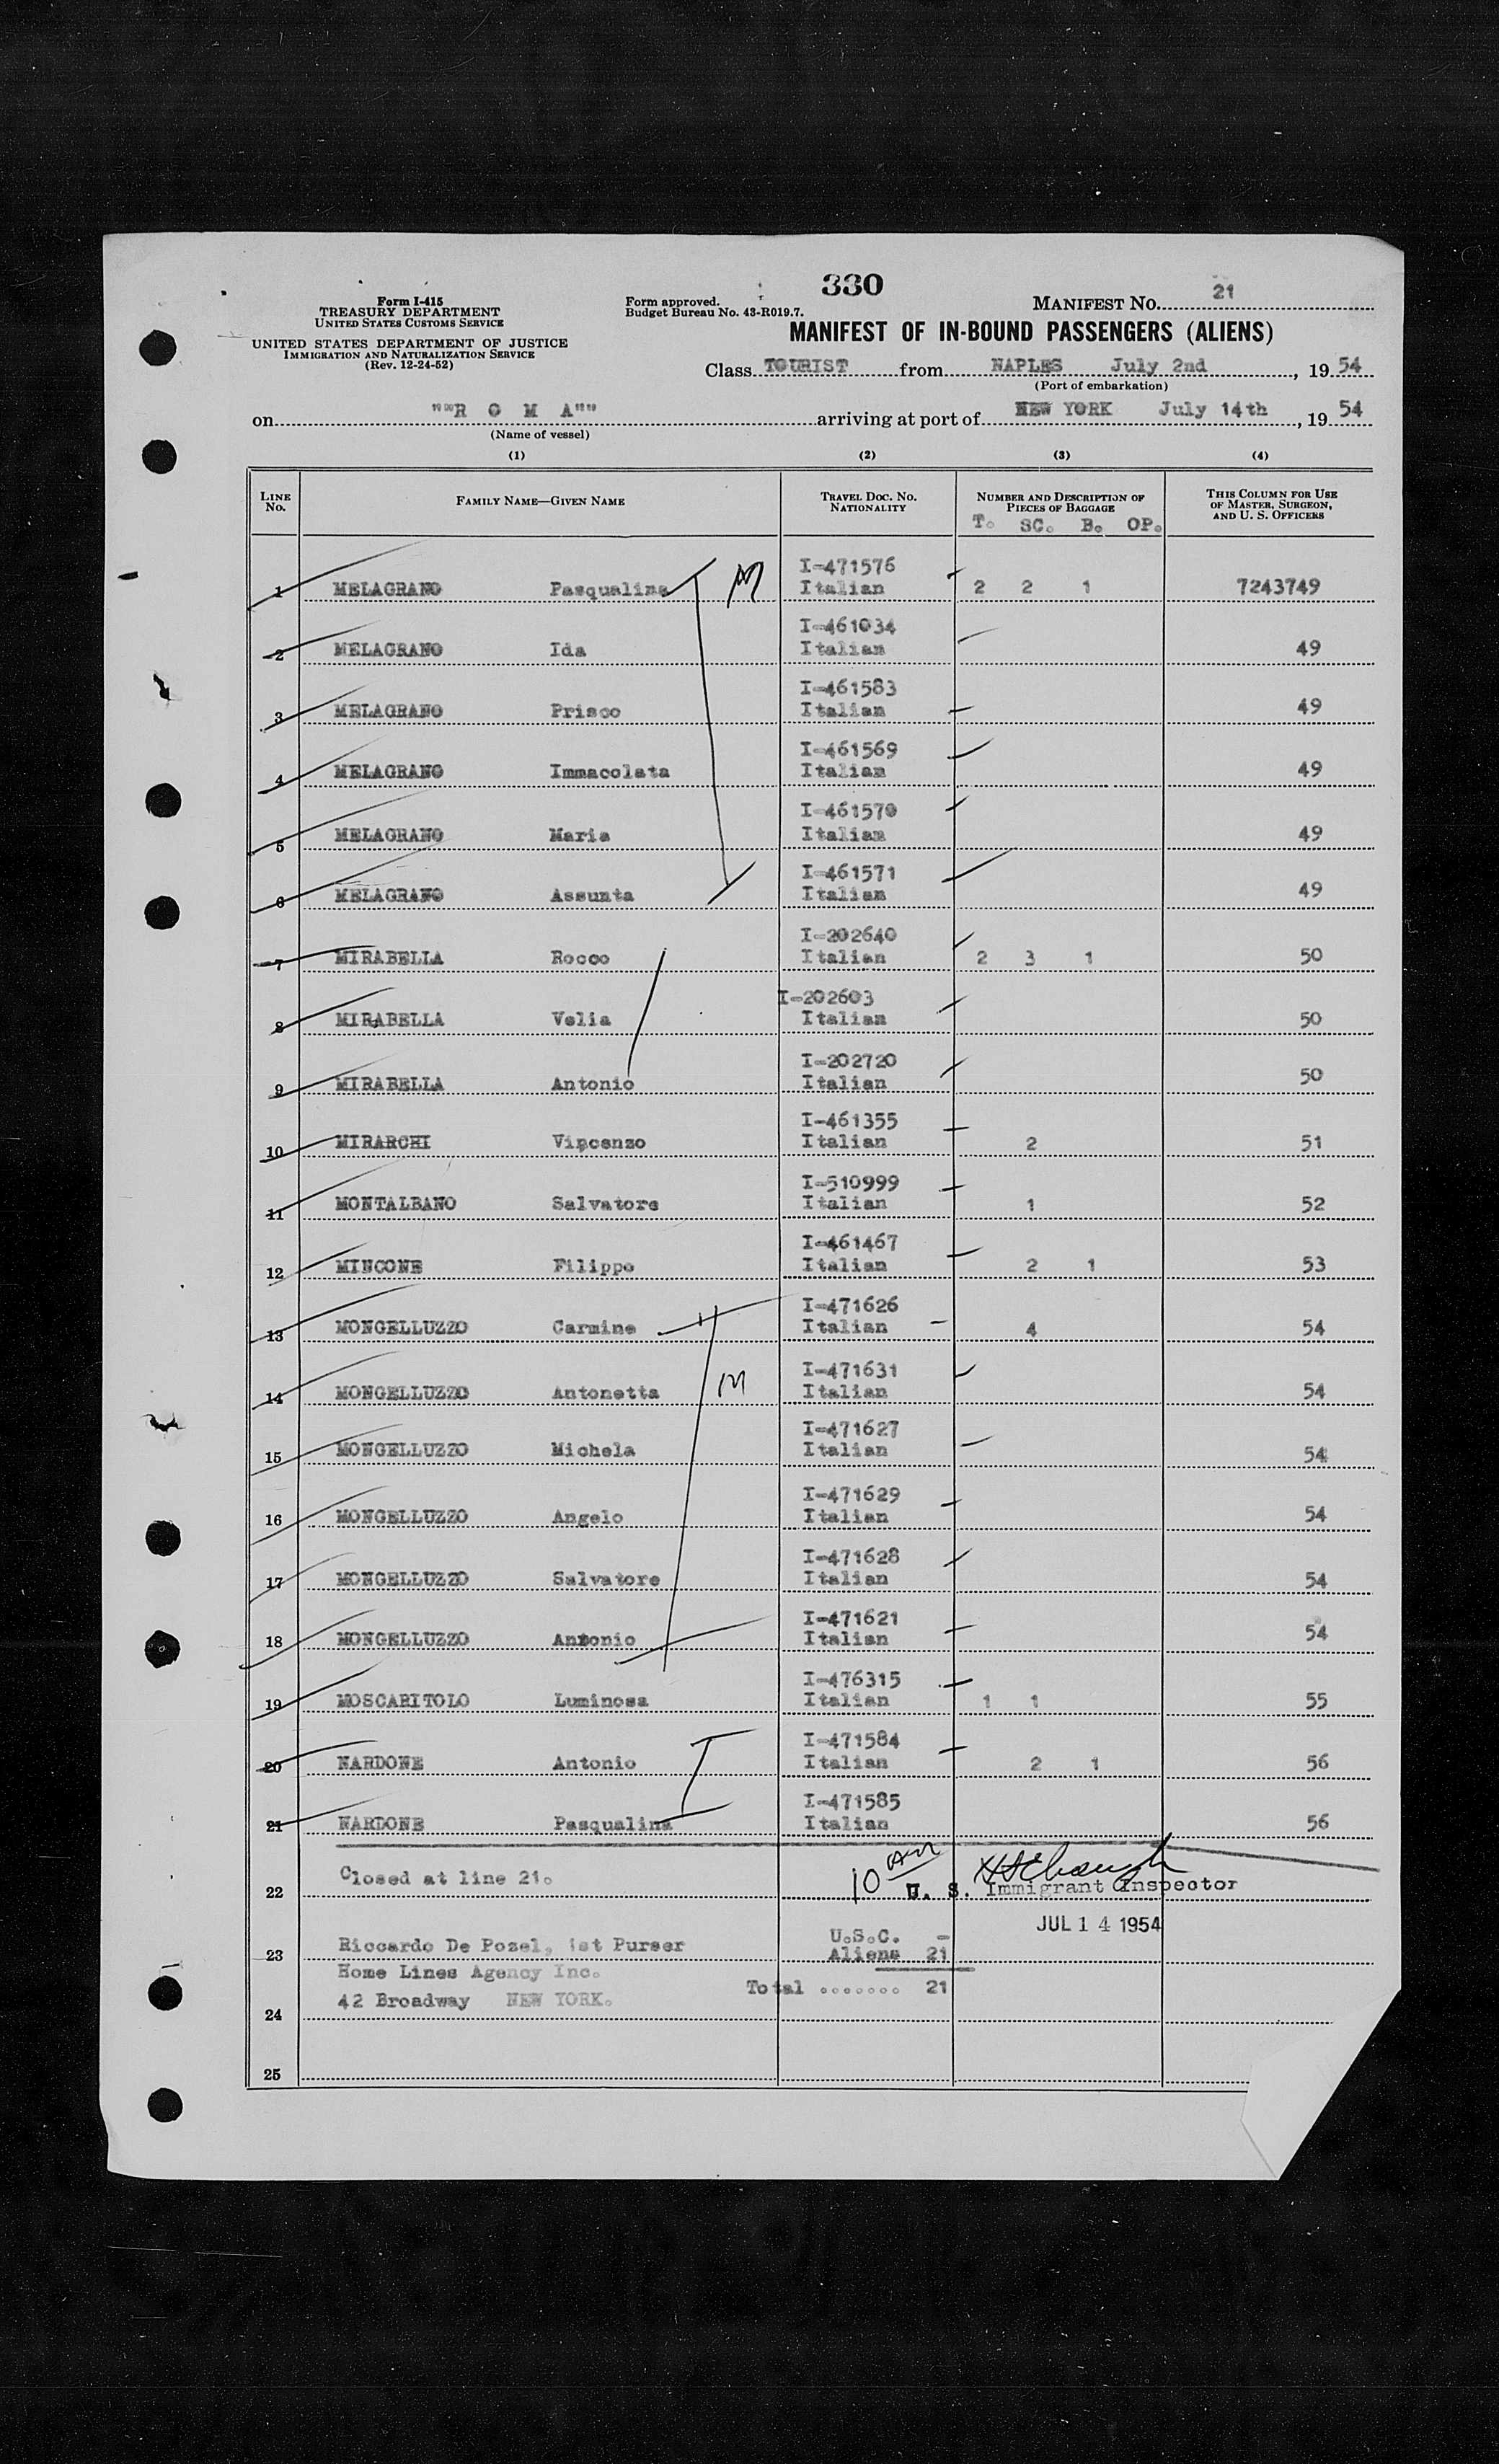 330
Form I-415
TREASURY DEPARTMENT
UNITED STATES CUSTOMS SERVICE
UNITED STATES DEPARTMENT OF JUSTICE
IMMIGRATION AND NATURALIZATION SERVICE
(Rev. 12-24-52)
Form approved.
Budget Bureau No. 43-R019.7.
MANIFEST No. 21
MANIFEST OF IN-BOUND PASSENGERS (ALIENS)
Class TOURIST from NAPLES July 2nd, 19 54
(Port of embarkation)
on ""R O M A"" arriving at port of NEW YORK July 14th, 19 54
(Name of vessel)
(1) (2) (3) (4)
LINE No. FAMILY NAME—GIVEN NAME TRAVEL DOC. NO. NATIONALITY NUMBER AND DESCRIPTION OF PIECES OF BAGGAGE THIS COLUMN FOR USE OF MASTER, SURGEON, AND U. S. OFFICERS
T. SC. B. OP.
I-471576
1 MELAGRANO Pasqualina M Italian 2 2 1 7243749
I-461034
2 MELAGRANO Ida Italian 49
I-461583
3 MELAGRANO Prisco Italian 49
I-461569
4 MELAGRANO Immacolata Italian 49
I-461570
5 MELAGRANO Maria Italian 49
I-461571
6 MELAGRANO Assunta Italian 49
I-202640
7 MIRABELLA Rocco Italian 2 3 1 50
I-202603
8 MIRABELLA Velia Italian 50
I-202720
9 MIRABELLA Antonio Italian 50
I-461355
10 MIRARCHI Vincenzo Italian 2 51
I-510999
11 MONTALBANO Salvatore Italian 1 52
I-461467
12 MINCONE Filippo Italian 2 1 53
I-471626
13 MONGELLUZZO Carmine Italian 4 54
I-471631
14 MONGELLUZZO Antonetta M Italian 54
I-471627
15 MONGELLUZZO Michela Italian 54
I-471629
16 MONGELLUZZO Angelo Italian 54
I-471628
17 MONGELLUZZO Salvatore Italian 54
I-471621
18 MONGELLUZZO Antonio Italian 54
I-476315
19 MOSCARITOLO Luminosa Italian 1 1 55
I-471584
20 NARDONE Antonio Italian 2 1 56
I-471585
21 NARDONE Pasqualina Italian 56
Closed at line 21. 10 AM
22 U. S. Immigrant Inspector
JUL 14 1954
U.S.C. -
23 Riccardo De Pozel, 1st Purser Aliens 21
Home Lines Agency Inc.
Total ....... 21
42 Broadway NEW YORK.
24
25